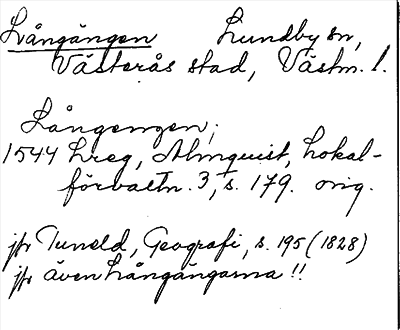 Långängen Lundby sn,
Västerås stad, Västm. l.
Långengen;
1544 Lreg, Almquist, Lokal-
förvaltn. 3, s. 179. orig.
jfr Tuneld, Geografi, s. 195 (1828)
jfr även Långängarna !!